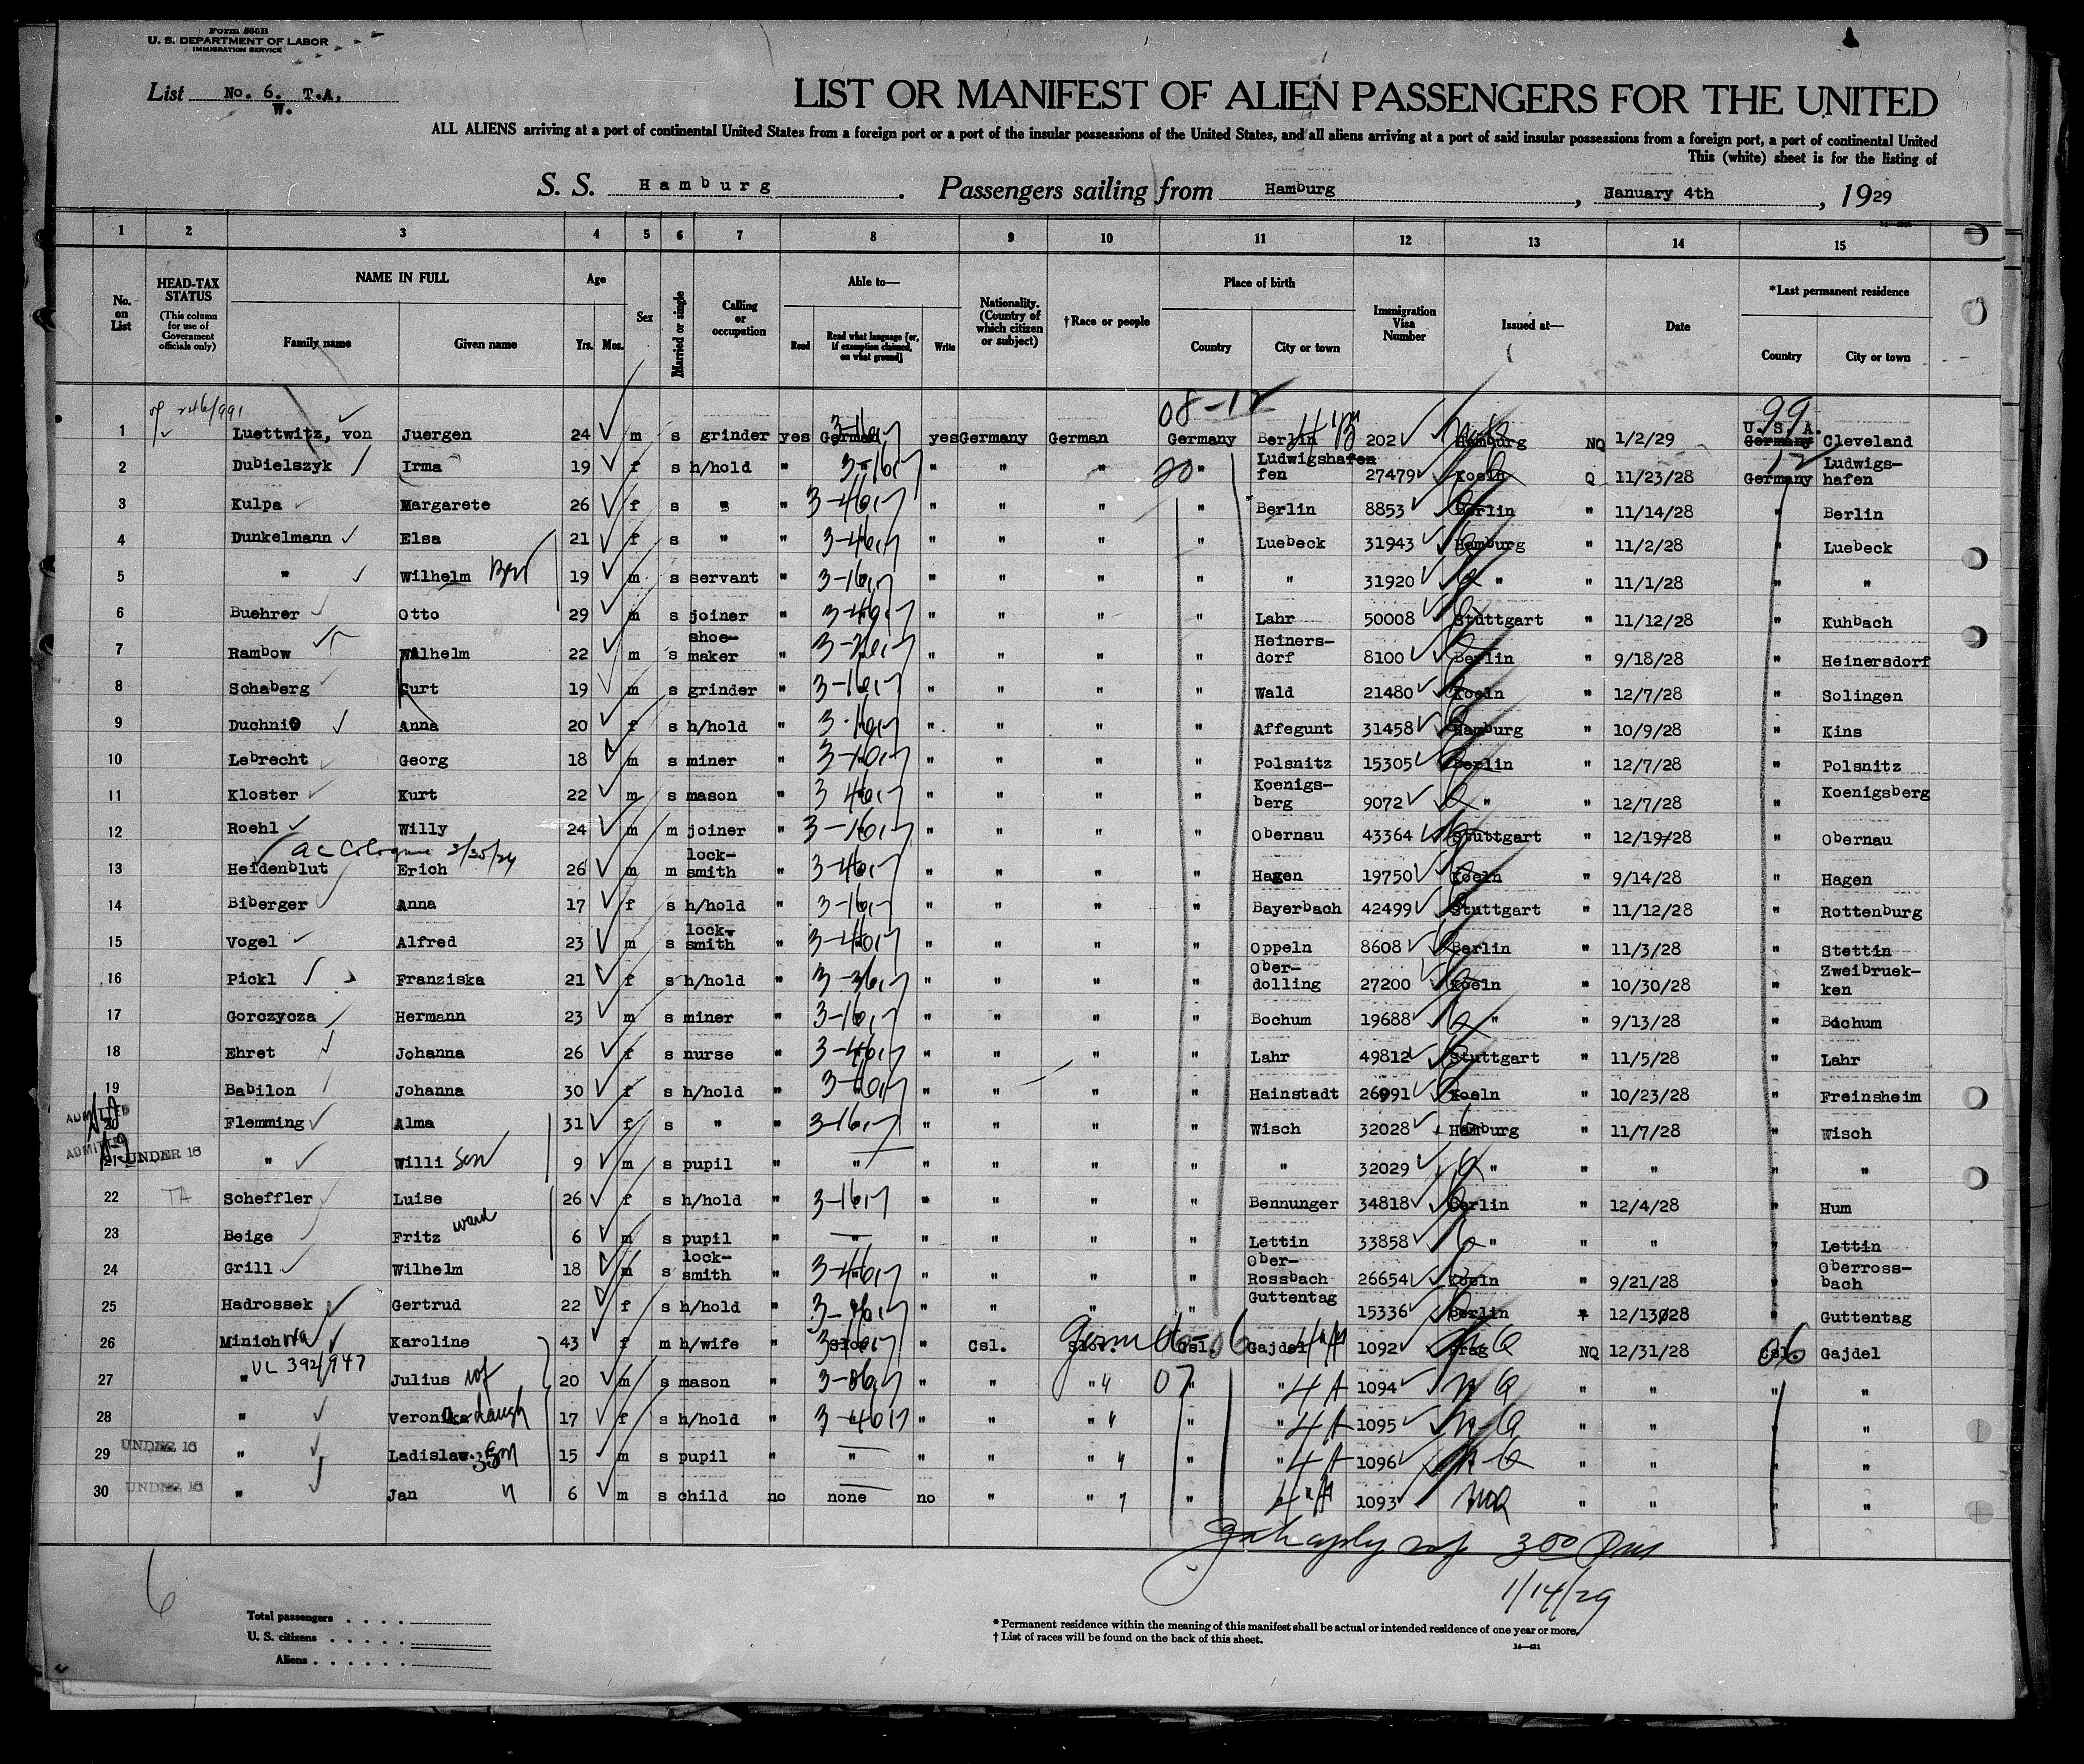 Form 500B
U. S. DEPARTMENT OF LABOR
IMMIGRATION SERVICE
List No. 6. T.A.
W.
LIST OR MANIFEST OF ALIEN PASSENGERS FOR THE UNITED
ALL ALIENS arriving at a port of continental United States from a foreign port or a port of the insular possessions of the United States, and all aliens arriving at a port of said insular possessions from a foreign port, a port of continental United
This (white) sheet is for the listing of
S. S. Hamburg. Passengers sailing from Hamburg, January 4th, 1929
1 2 3 4 5 6 7 8 9 10 11 12 13 14 15
No. on List
HEAD-TAX STATUS (This column for use of Government officials only)
NAME IN FULL
Family name Given name
Age
Yrs. Mos.
Sex
Married or single
Calling or occupation
Able to—
Read Read what language [or, if exemption claimed, on what ground] Write
Nationality. (Country of which citizen or subject)
†Race or people
Place of birth
Country City or town
Immigration Visa Number
Issued at—
Date
*Last permanent residence
Country City or town
246/991 08-12 99
1 Luettwitz, von Juergen 24 m s grinder yes German yes Germany German Germany Berlin 202 Hamburg NQ 1/2/29 U.S.A. Germany Cleveland
2 Dubielszyk Irma 19 f s h/hold " " " " 20 " Ludwigshafen fen 27479 Koeln Q 11/23/28 12 Germany Ludwigs-hafen
3 Kulpa Margarete 26 f s " " " " " " Berlin 8853 Berlin " 11/14/28 " Berlin
4 Dunkelmann Elsa 21 f s " " " " " " Luebeck 31943 Hamburg " 11/2/28 " Luebeck
5 " Wilhelm 19 m s servant " " " " " " 31920 " " 11/1/28 " "
6 Buehrer Otto 29 m s joiner " " " " " Lahr 50008 Stuttgart " 11/12/28 " Kuhbach
7 Rambow Wilhelm 22 m s shoe-maker " " " " " Heiners-dorf 8100 Berlin " 9/18/28 " Heinersdorf
8 Schaberg Curt 19 m s grinder " " " " " Wald 21480 Koeln " 12/7/28 " Solingen
9 Duchnio Anna 20 f s h/hold " " " " " Affegunt 31458 Hamburg " 10/9/28 " Kins
10 Lebrecht Georg 18 m s miner " " " " " Polsnitz 15305 Berlin " 12/7/28 " Polsnitz
11 Kloster Kurt 22 m s mason " " " " " Koenigs-berg 9072 " " 12/7/28 " Koenigsberg
12 Roehl Willy 24 m m joiner " " " " " Obernau 43364 Stuttgart " 12/19/28 " Obernau
13 Heidenblut Erich 26 m m lock-smith " " " " " Hagen 19750 Koeln " 9/14/28 " Hagen
14 Biberger Anna 17 f s h/hold " " " " " Bayerbach 42499 Stuttgart " 11/12/28 " Rottenburg
15 Vogel Alfred 23 m s lock-smith " " " " " Oppeln 8608 Berlin " 11/3/28 " Stettin
16 Pickl Franziska 21 f s h/hold " " " " " Ober-dolling 27200 Koeln " 10/30/28 " Zweibruek-ken
17 Gorczycza Hermann 23 m s miner " " " " " Bochum 19688 " " 9/13/28 " Bochum
18 Ehret Johanna 26 f s nurse " " " " " Lahr 49812 Stuttgart " 11/5/28 " Lahr
19 Babilon Johanna 30 f s h/hold " " " " " Hainstadt 26991 Koeln " 10/23/28 " Freinsheim
ADMITTED 20 Flemming Alma 31 f s " " " " " " Wisch 32028 Hamburg " 11/7/28 " Wisch
ADMITTED 21 UNDER 16 " Willi son 9 m s pupil " " " " " " " 32029 " " " " "
22 TA Scheffler Luise 26 f s h/hold " " " " " Bennunger 34818 Berlin " 12/4/28 " Hum
23 Beige Fritz ward 6 m s pupil " " " " " Lettin 33858 " " " " Lettin
24 Grill Wilhelm 18 m s lock-smith " " " " " Ober-Rossbach 26654 Koeln " 9/21/28 " Oberross-bach
25 Hadrossek Gertrud 22 f s h/hold " " " " " Guttentag 15336 Berlin " 12/13/28 " Guttentag
26 Minich Karoline 43 f m h/wife " Slov. " Csl. Slov. Germ 06-06 Csl. Gajdel 1092 Prag NQ 12/31/28 06 Csl. Gajdel
VL 392/947
27 " Julius 20 m s mason " " " " 07 " " 1094 NQ " " " "
28 " Veronika daugh 17 f s h/hold " " " " " " 1095 NQ " " " "
29 UNDER 16 " Ladislaw. son 15 m s pupil " " " " " " " 1096 NQ " " " "
30 UNDER 16 " Jan " 6 m s child no none no " " " " 1093 NQ " " " "
300 Pm
1/14/29
6
Total passengers . . . .
U. S. citizens . . . . .
Aliens . . . . . .
* Permanent residence within the meaning of this manifest shall be actual or intended residence of one year or more.
† List of races will be found on the back of this sheet.
14—421